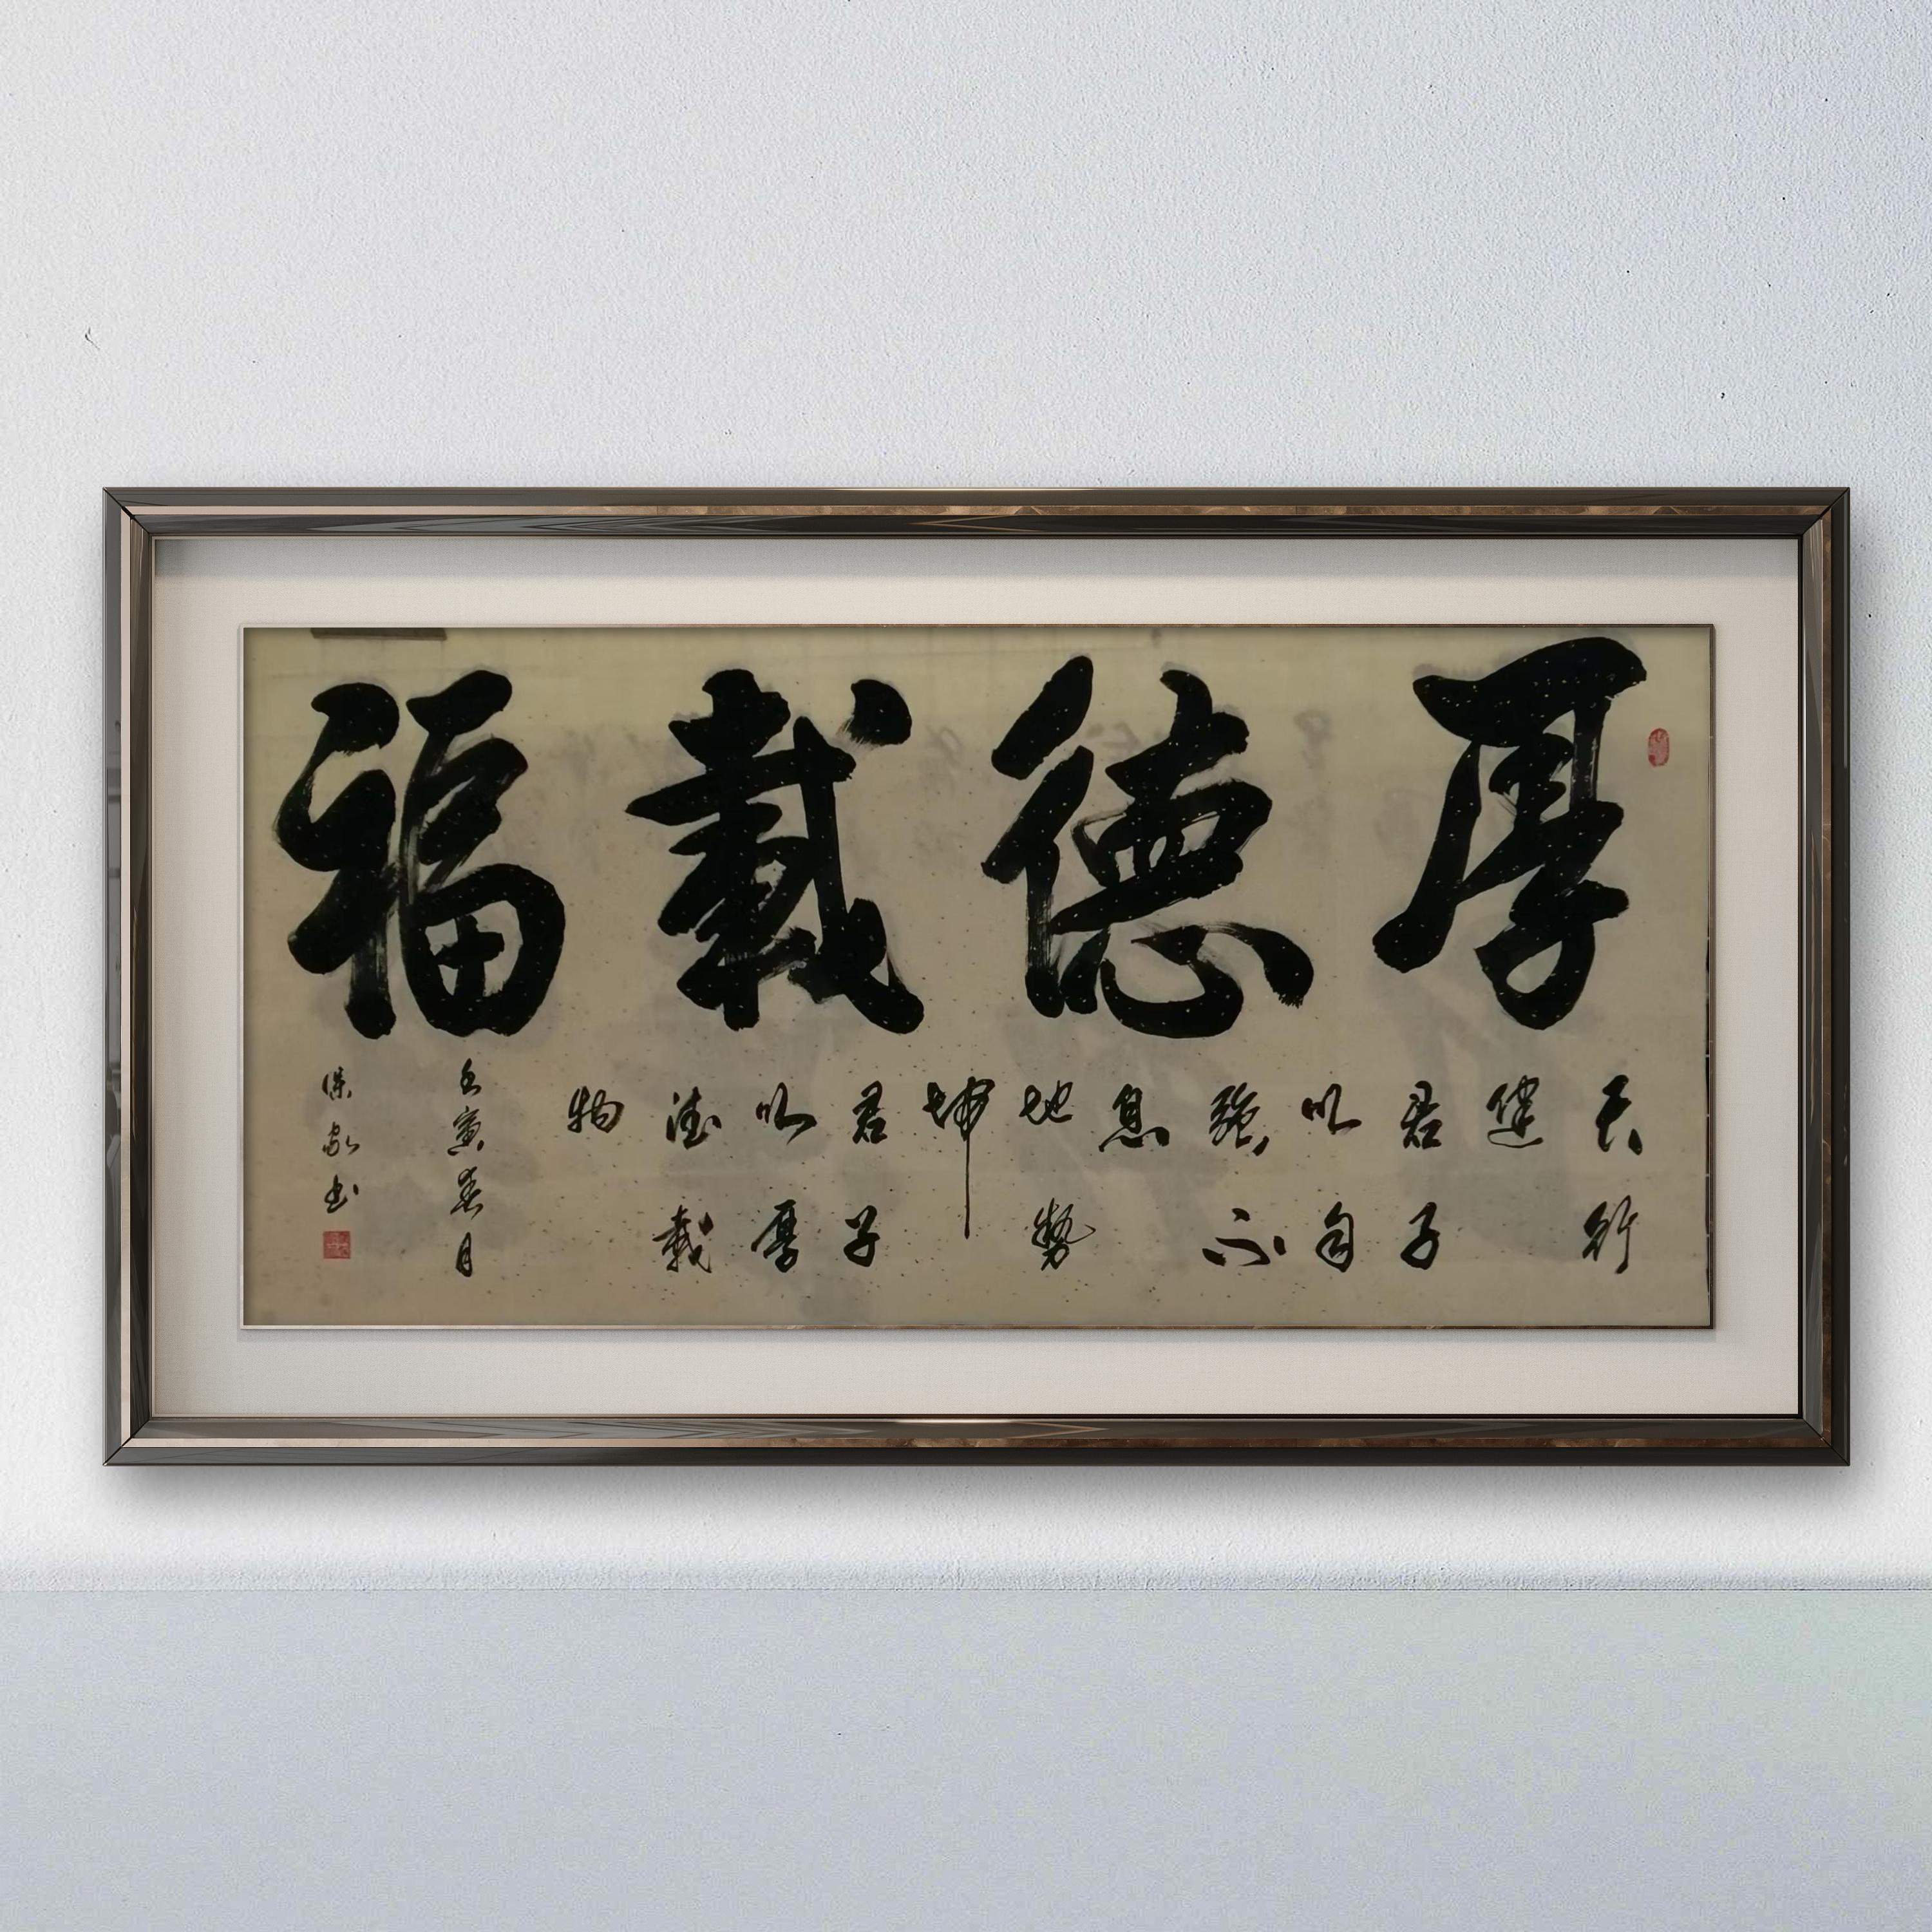 厚德載福
天行
健
君子
以自
強不
息
地勢
坤
君子
以厚
德載
物
壬寅春月
保 书